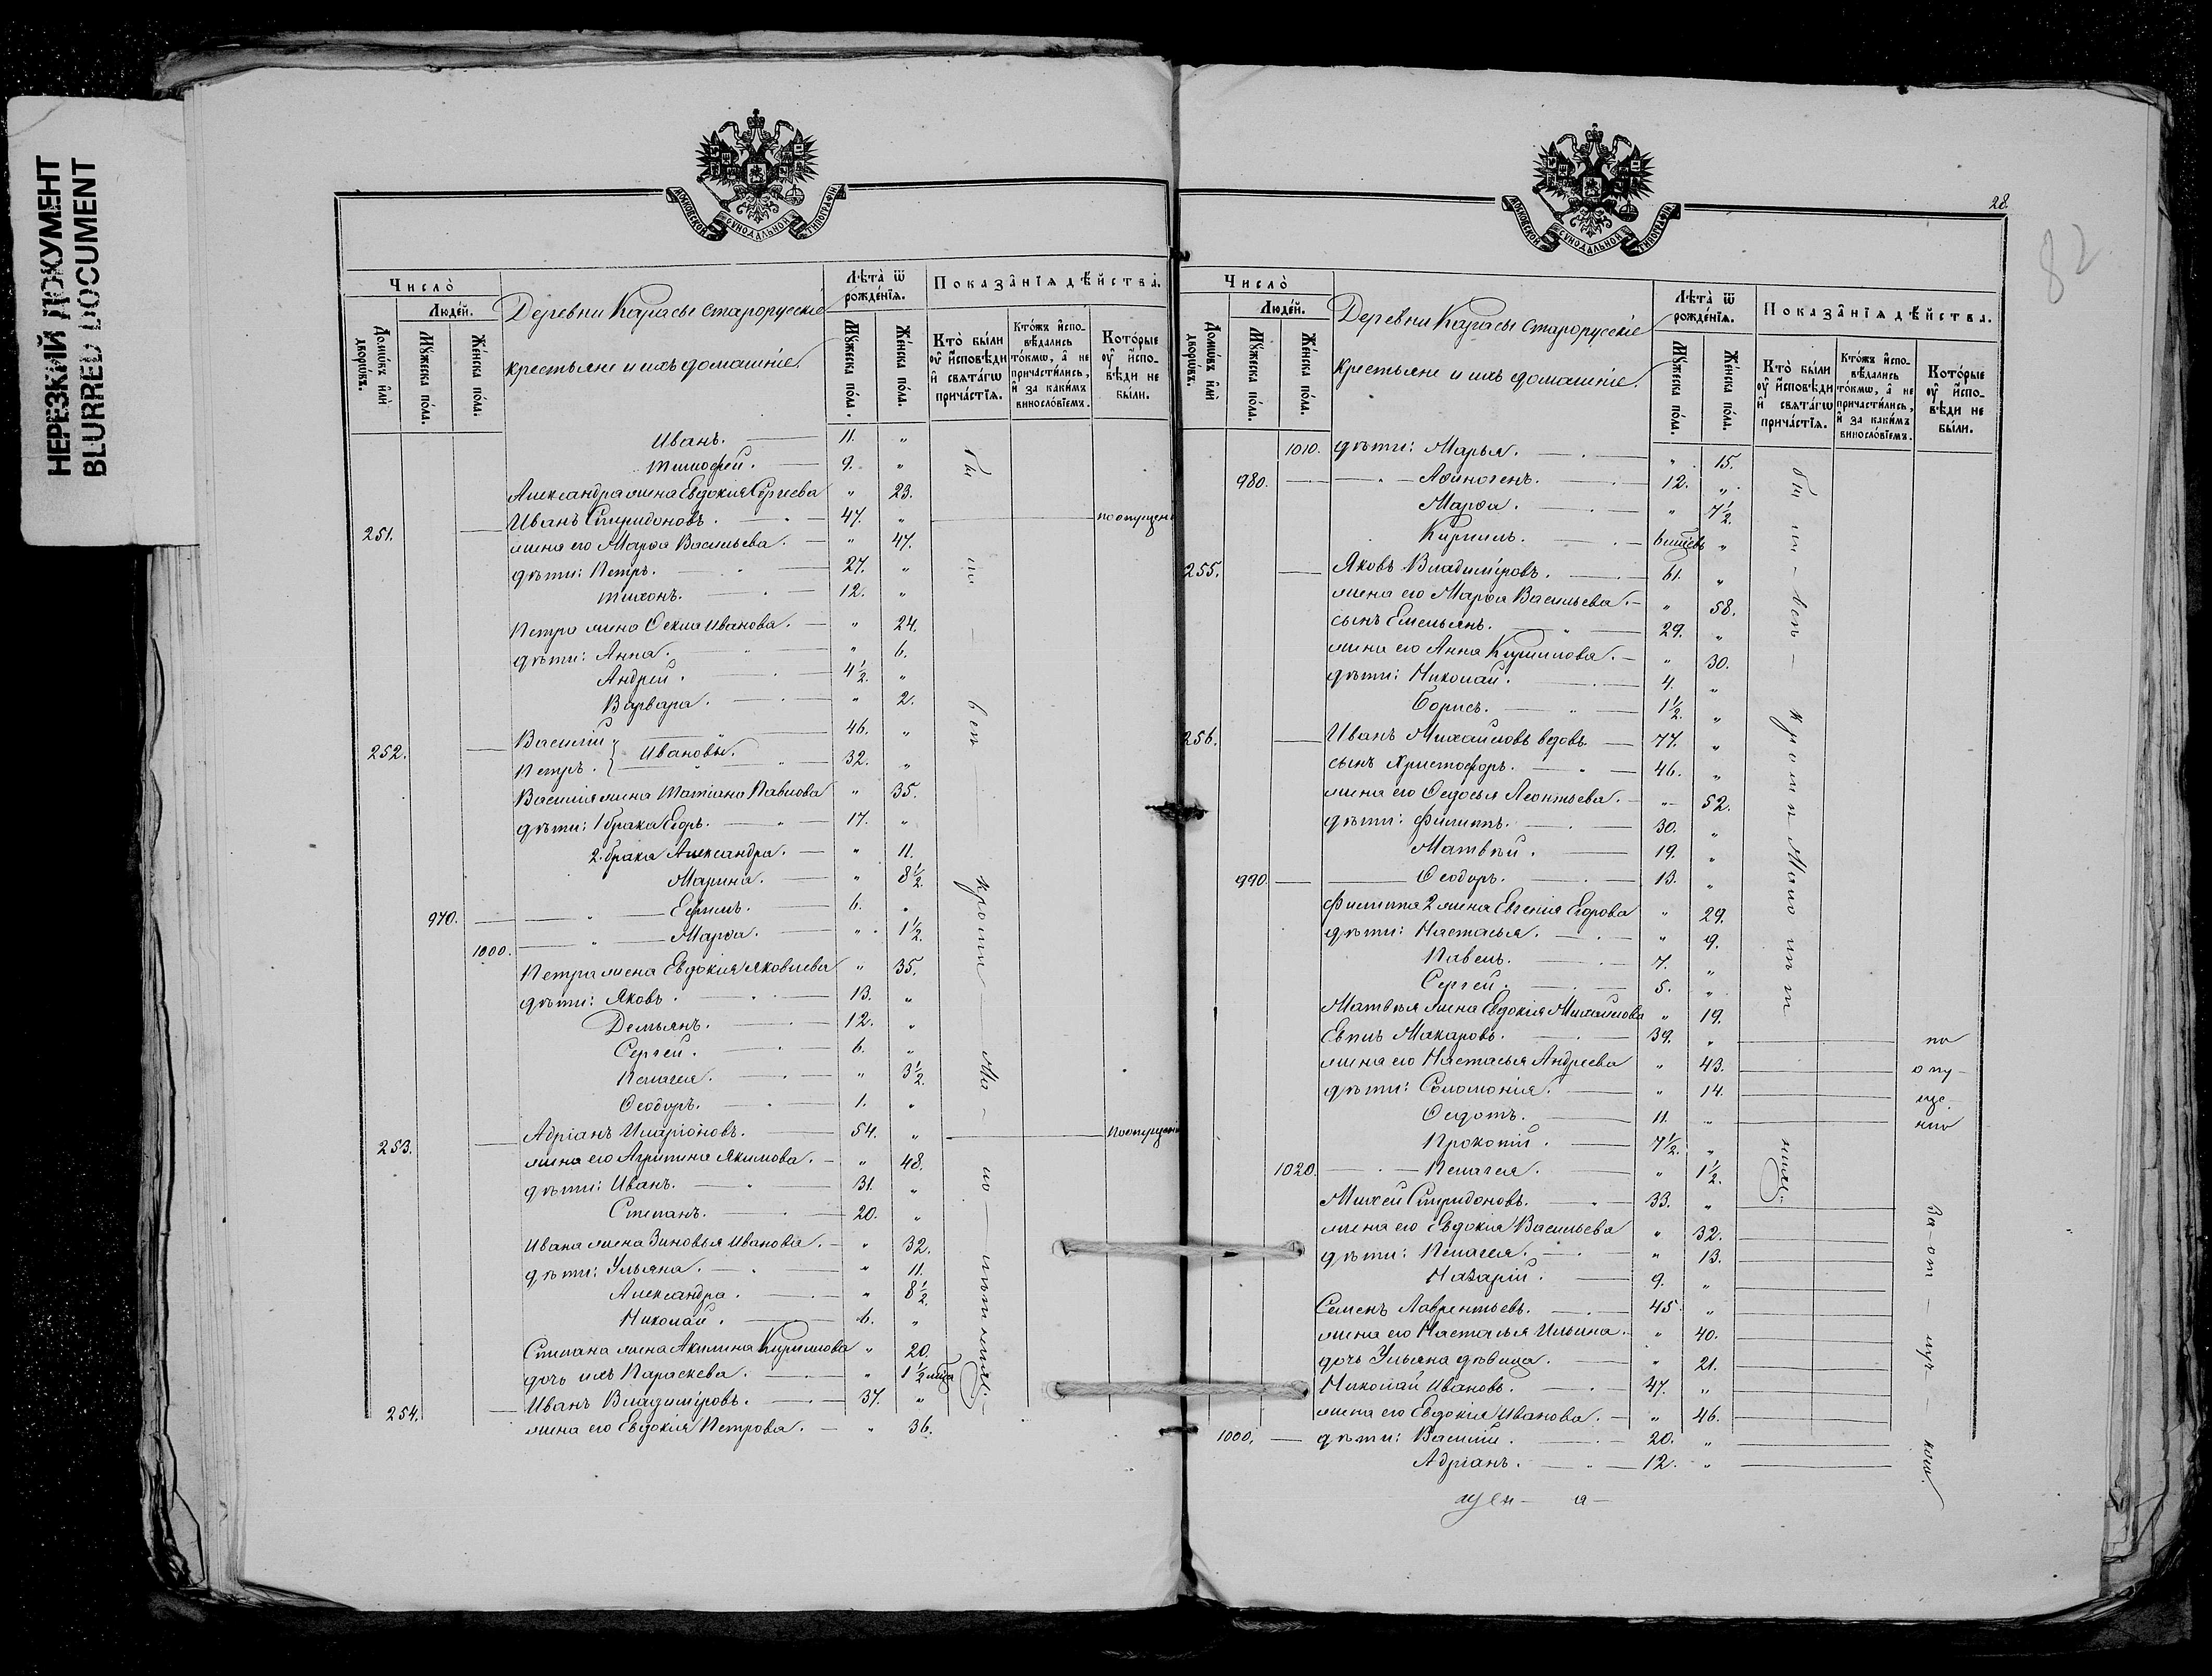 НЕРЕЗКИЙ ДОКУМЕНТ
BLURRED DOCUMENT
МОСКОВСКОЙ СѴНОДАЛЬНОЙ ТИПОГРАФІИ
Число̀
Люде́й.
Домо́въ и҆лѝ дворѡ́въ.
Мꙋ́жеска по́ла.
Же́нска по́ла.
Деревни Карасье Старорусскіе
крестьяне и ихъ домашніе.
Лѣ́та ѿ рожде́нїѧ.
Мꙋ́жеска по́ла.
Же́нска по́ла.
Показа̑нїѧ дѣ́йства.
Кто̀ бы́ли ᲂу҆ и҆́сповѣди и҆ свѧта́гѡ прича́стїѧ.
Кто́жъ и҆спо- вѣ́дались то́кмѡ, а҆ не причасти́лись, и҆ за каки́мъ винослові́емъ.
Кото́рые ᲂу҆ и҆́спо- вѣди не бы́ли.
Иванъ. 11. „
Тимофей. 9. „
Александра жена Евдокія Сергеева „ 23.
251. Иванъ Спиридоновъ. 47. „ по опущен
жена его Марѳа Васильева. „ 47.
дѣти: Петръ. 27. „
Тихонъ. 12. „
Петра жена Ѳекла Иванова. „ 24.
дѣти: Анна. „ 6.
Андрей. 4½. „
Варвара. „ 2.
252. Василій 46. „
Петръ. } Ивановы. 32. „
Василія жена Татіана Павлова „ 35.
дѣти: 1 брака Егоръ. 17. „
2. брака Александра. „ 11.
Марина. „ 8½.
970. Ефимъ. 6. „
1000. Марѳа. „ 1½.
Петра жена Евдокія Яковлева „ 35.
дѣти: Яковъ. 13. „
Демьянъ. 12. „
Сергей. 6. „
Пелагея. „ 3½.
Ѳеодоръ. 1. „
253. Адріанъ Иларіоновъ. 54. „ по опущен
жена его Агрипина Якимова. „ 48.
дѣти: Иванъ. 31. „
Степанъ. 20. „
Ивана жена Зиновья Иванова. „ 32.
дѣти: Ульяна. „ 11.
Александра. „ 8½.
Николай. 6. „
Степана жена Акилина Кирилова „ 20.
дочь ихъ Параскева. „ 1½
254. Иванъ Владиміровъ. 37. „
жена его Евдокія Петрова. „ 36.
бы ли всѣ кромѣ Ма ло лѣтнихъ.
28.
82
МОСКОВСКОЙ СѴНОДАЛЬНОЙ ТИПОГРАФІИ
Число̀
Люде́й.
Домѡ́въ и҆лѝ дворѡ́въ.
Мꙋ́жеска по́ла.
Же́нска по́ла.
Деревни Карасье Старорусскіе
крестьяне и ихъ домашніе.
Лѣ́та ѿ рожде́нїѧ.
Мꙋ́жеска по́ла.
Же́нска по́ла.
Показа̑нїѧ дѣ́йства.
Кто̀ бы́ли ᲂу҆ и҆́сповѣди и҆ свѧта́гѡ прича́стїѧ.
Кто́жъ и҆спо- вѣ́дались то́кмѡ, а҆ не причасти́лись, и҆ за каки́мъ винослові́емъ.
Кото́рые ᲂу҆ и҆́спо- вѣди не бы́ли.
1010. дѣти: Марья. „ 15.
980. Аѳиногенъ. 12. „
Марѳа. „ 7½.
Кирилъ. „
255. Яковъ Владиміровъ. 61. „
жена его Марѳа Васильева. „ 58.
сынъ Емельянъ. 29. „
жена его Анна Кирилова. „ 30.
дѣти: Николай. 4. „
Борисъ. 1½. „
256. Иванъ Михайловъ вдовъ. 77. „
сынъ Христофоръ. 46. „
жена его Ѳедосья Леонтьева. „ 52.
дѣти: Филиппъ. 30. „
Матвѣй. 19. „
990. Ѳеодоръ. 13. „
Филиппа 2 жена Евгенія Егорова „ 29.
дѣти: Настасья. „ 9.
Павелъ. 7. „
Сергей. 5. „
Матвѣя жена Евдокія Михайлова „ 19.
Евплъ Макаровъ. 39. „ по
жена его Настасья Андреева „ 43. опу-
дѣти: Соломонія. „ 14. ще-
Ѳедотъ. 11. „ нію
Прокопій. 7½. „
1020. Пелагея. „ 1½.
Михей Спиридоновъ. 33. „
жена его Евдокія Васильева „ 32.
дѣти: Пелагея. „ 13.
Назарій. 9. „
Семенъ Лаврентьевъ. 45. „
жена его Настасья Ильина. „ 40.
дочь Ульяна дѣвица. „ 21.
Николай Ивановъ. 47. „
жена его Евдокія Иванова. „ 46.
1000. дѣти: Василій. 20. „
Адріанъ. 12. „
бы ли всѣ кромѣ Малолѣтнихъ.
За от луч кою.